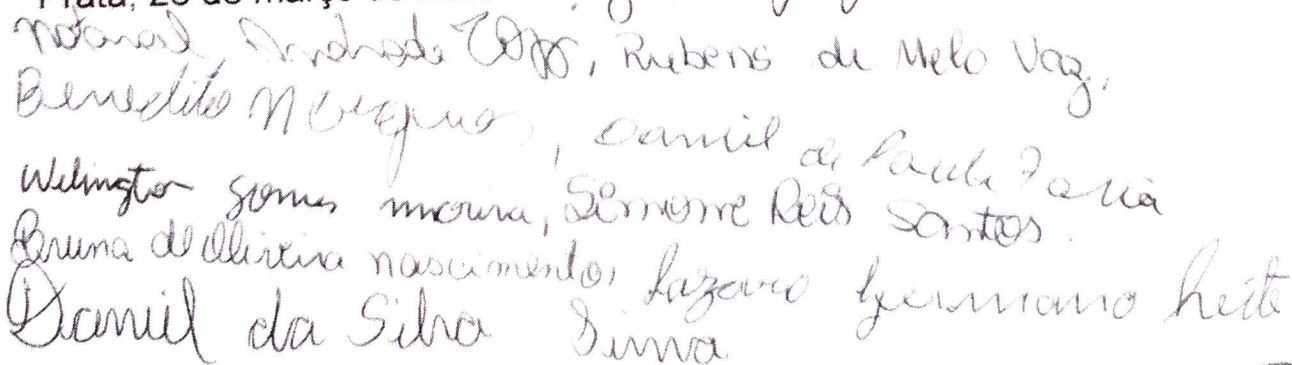 Prata, 23 de março de
Andrade, Rubens de Melo Vaz,
Benedito, Daniel de Paula Faria
Welington Gomes moreira, Simone Reis Santos.
Bruna de Oliveira nascimento, Lazaro Germano Leite
Daniel da Silva